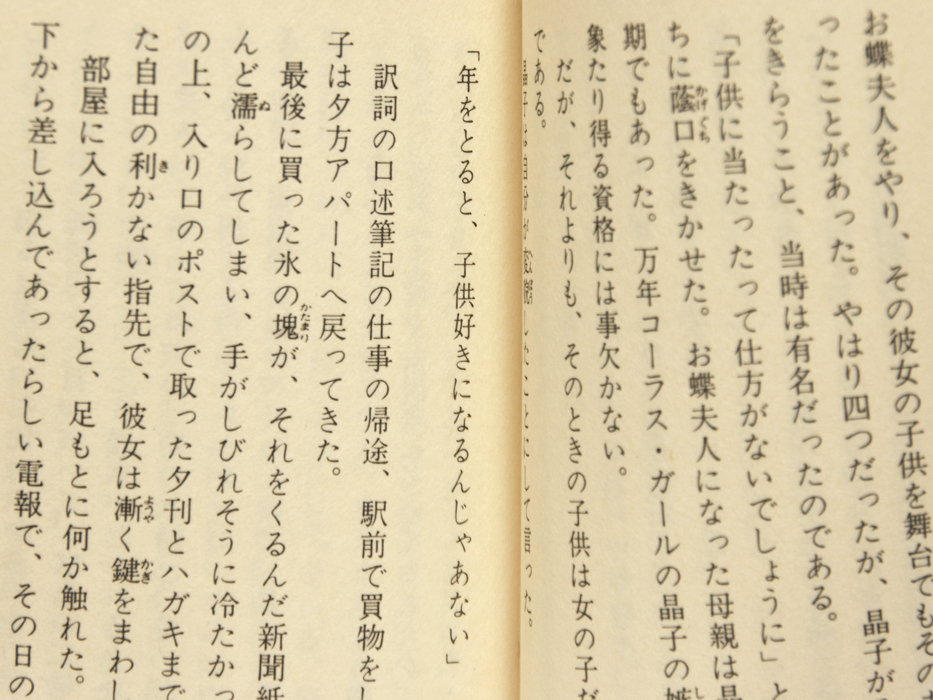 お蝶夫人をやり、その彼女の子供を舞台でもその
ったことがあった。やはり四つだったが、晶子が
をきらうこと、当時は有名だったのである。
「子供に当たったって仕方がないでしょうに」と
ちに蔭口をきかせた。お蝶夫人になった母親は晶
期でもあった。万年コーラス・ガールの晶子の嫉
象たり得る資格には事欠かない。
だが、それよりも、そのときの子供は女の子だ
である。
晶子は自分が
したことにして言った。
「年をとると、子供好きになるんじゃあない」
訳詞の口述筆記の仕事の帰途、駅前で買物をし
子は夕方アパートへ戻ってきた。
最後に買った氷の塊が、それをくるんだ新聞紙
んど濡らしてしまい、手がしびれそうに冷たかっ
の上、入り口のポストで取った夕刊とハガキまで
た自由の利かない指先で、彼女は漸く鍵をまわし
部屋に入ろうとすると、足もとに何か触れた。
下から差し込んであったらしい電報で、その日の